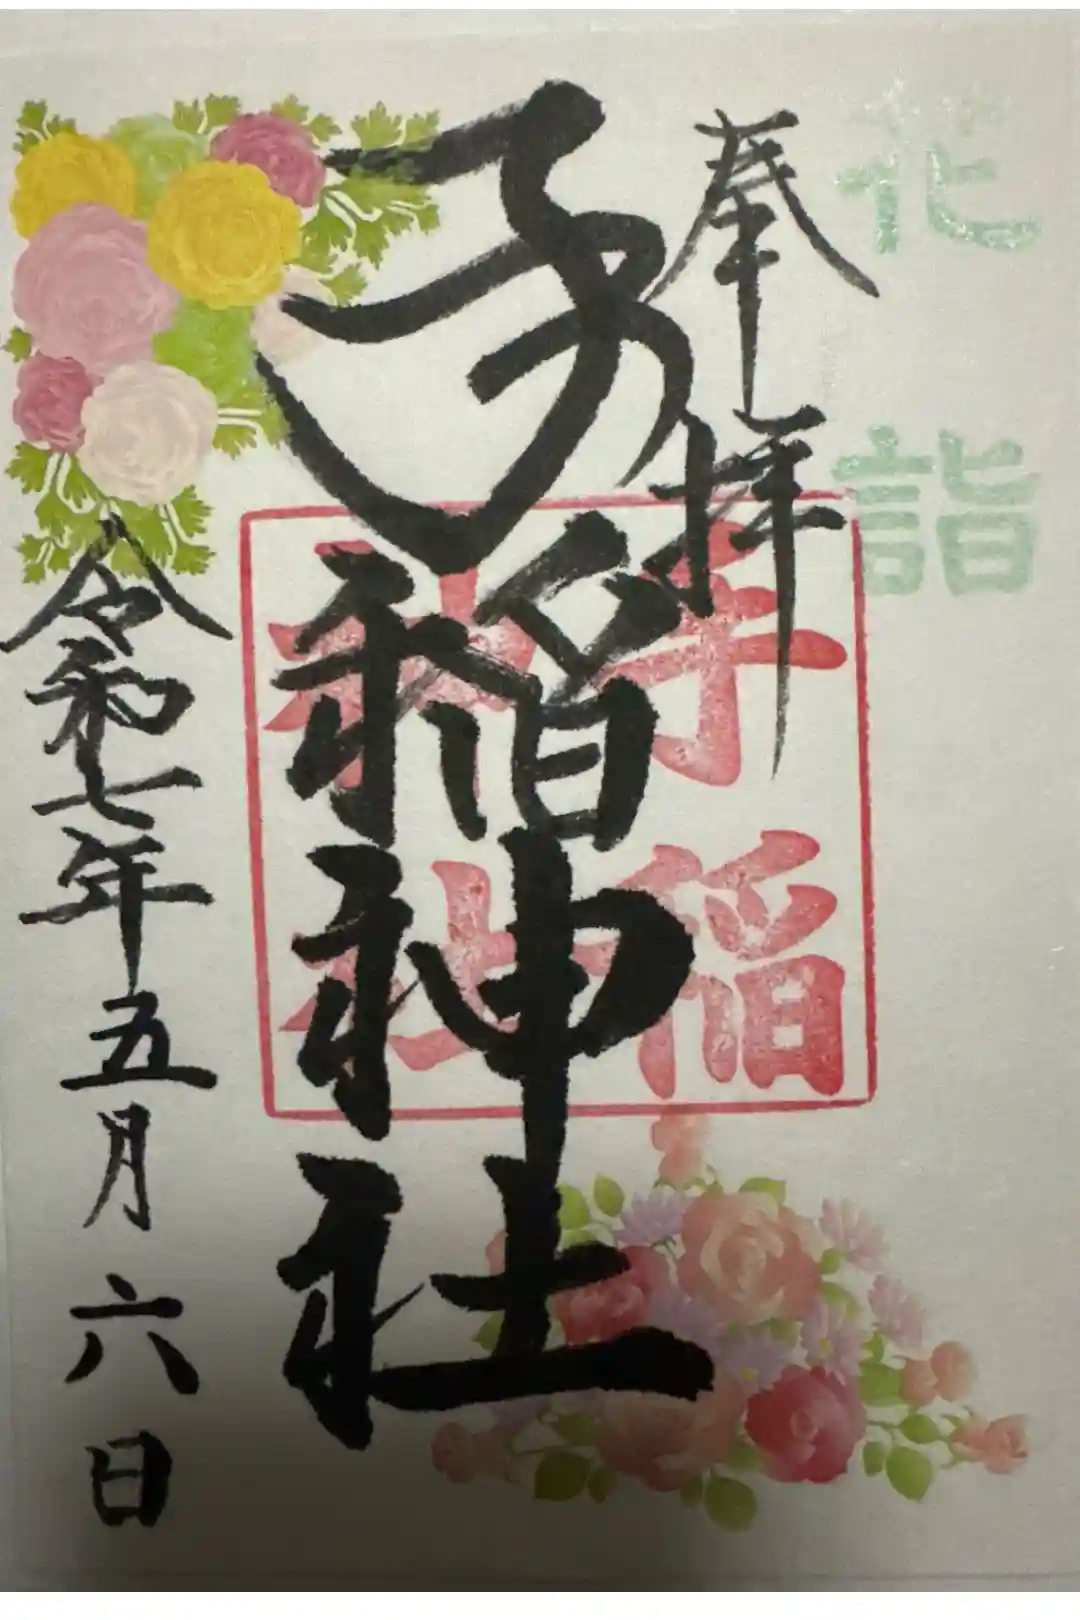 花詣
奉拝
手稲神社
手稲
神社
令和七年五月六日